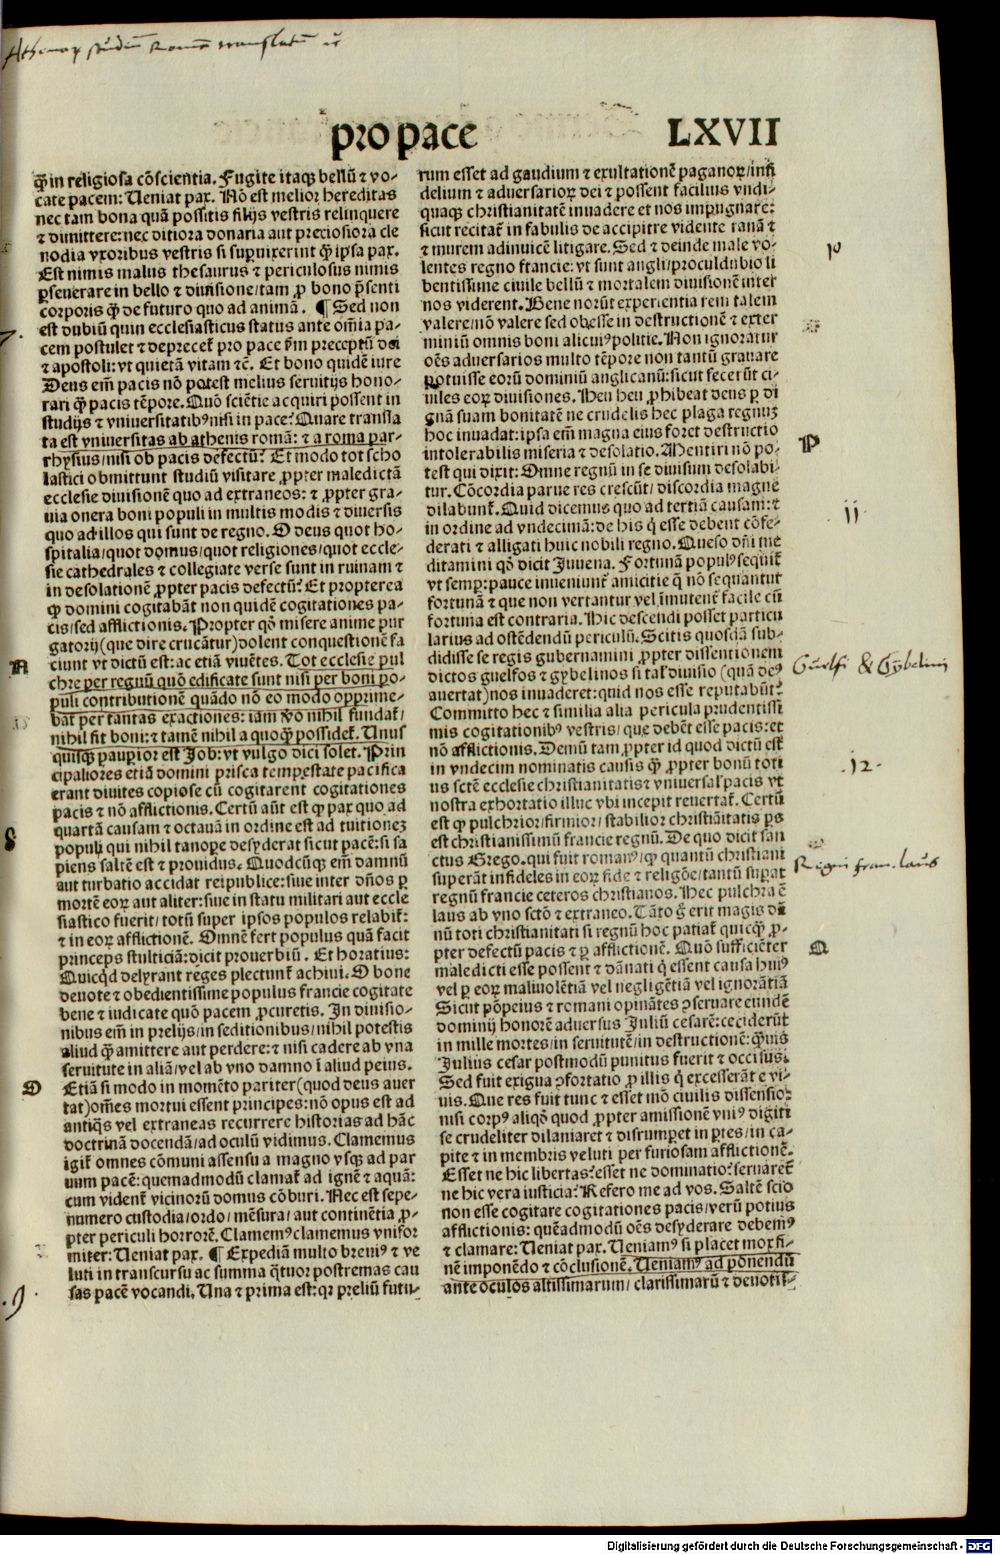 pro pace
LXVII
q̄ in religiosa cōscientia. Fugite itaqȝ bellū ⁊ vo-
cate pacem: Ueniat pax. Nō est melior hereditas
nec tam bona quā possitis filijs vestris relinquere
⁊ dimittere: nec ditiora donaria aut preciosiora cle
nodia vxoribus vestris si supuixerint q̄ ipsa pax.
Est nimis malus thesaurus ⁊ periculosus nimis
ꝑseuerare in bello ⁊ diuisione/ tam ꝓ bono p̄senti
corporis q̄ de futuro quo ad animā. ¶ Sed non
est dubiū quin ecclesiasticus status ante om̄ia pa-
cem postulet ⁊ deprecet̄ pro pace ꝑm preceptū dei
⁊ apostoli: vt quietā vitam ⁊c̄. Et bono quidē iure
Deus em̄ pacis nō potest melius seruitijs hono-
rari q̄ pacis tēpore. Quō sciētie acquiri possent in
studijs ⁊ vniuersitatibꝰ nisi in pace? Quare transla
ta est vniuersitas ab athenis romā: ⁊ a roma par-
rhysius/ nisi ob pacis defectū? Et modo tot scho
lastici obmittunt studiū visitare ꝓpter maledictā
ecclesie diuisionē quo ad extraneos: ⁊ ꝓpter gra-
uia onera boni populi in multis modis ⁊ diuersis
quo ad illos qui sunt de regno. O deus quot ho-
spitalia/ quot domus/ quot religiones/ quot eccle-
sie cathedrales ⁊ collegiate verse sunt in ruinam ⁊
in desolationē ꝓpter pacis defectū? Et propterea
ꝙ domini cogitabāt non quidē cogitationes pa-
cis/ sed afflictionis. Propter qō misere anime pur
gatorij (que dire crucātur) dolent conquestionē fa
ciunt vt dictū est: ac etiā viuētes. Tot ecclesie pul
chre per regnū quō edificate sunt nisi per boni po-
puli contributionē quādo nō eo modo opprime-
bat̄ per tantas exactiones: iam v̄o nihil fundat̄/
nihil fit boni: ⁊ tamē nihil a quoq̄ possidet̄. Unus
quisqȝ paupior est Job: vt vulgo dici solet. Prin
cipaliores etiā domini prisca tempestate pacifica
erant diuites copiose cū cogitarent cogitationes
pacis ⁊ nō afflictionis. Certū aūt est ꝙ pax quo ad
quartā causam ⁊ octauā in ordine est ad tuitionez
populi qui nihil tanope desyderat sicut pacē: si sa
piens saltē est ⁊ prouidus. Quodcūqȝ em̄ damnū
aut turbatio accidat reipublice: siue inter dn̄os ꝑ
mortē eorꝝ aut aliter: siue in statu militari aut eccle
siastico fuerit/ totū super ipsos populos relabit̄:
⁊ in eorꝝ afflictionē. Omnē fert populus quā facit
princeps stulticiā: dicit prouerbiū. Et horatius:
Quicqd delyrant reges plectunt̄ achiui. O bone
deuote ⁊ obedientissime populus francie cogitate
bene ⁊ iudicate quō pacem ꝓcuretis. In diuisio-
nibus em̄ in prelijs/ in seditionibus/ nihil potestis
aliud q̄ amittere aut perdere: ⁊ nisi cadere ab vna
seruitute in aliā/ vel ab vno damno ī aliud peius.
Etiā si modo in momēto pariter (quod deus auer
tat) om̄es mortui essent principes: nō opus est ad
antiq̄s vel extraneas recurrere historias ad hāc
doctrinā docendā/ ad oculū vidimus. Clamemus
igit̄ omnes cōmuni assensu a magno vsqȝ ad par
uum pacē: quemadmodū clamat̄ ad ignē ⁊ aquā:
cum vident̄ vicinorū domus cōburi. Nec est sepe-
numero custodia/ ordo/ mēsura/ aut continētia ꝓ-
pter periculi horrorē. Clamemꝰ clamemus vnifor
miter: Ueniat pax. ¶ Expediā multo breuiꝰ ⁊ ve
luti in transcursu ac summa q̄tuor postremas cau
sas pacē vocandi. Una ⁊ prima est: qꝛ preliū futu-
rum esset ad gaudium ⁊ exultationē paganorꝝ/ infi
delium ⁊ aduersariorꝝ dei ⁊ possent facilius vndi-
quaqȝ christianitatē inuadere et nos impugnare:
sicut recitat̄ in fabulis de accipitre vidente ranā ⁊
⁊ murem adinuicē litigare. Sed ⁊ deinde male vo-
lentes regno francie: vt sunt angli/ proculdubio li
bentissime ciuile bellū ⁊ mortalem diuisionē inter
nos viderent. Bene norūt experientia rem talem
valere/ nō valere sed obesse in destructionē ⁊ exter
miniū omnis boni alicuiꝰ politie. Non ignoratur
oēs aduersarios multo tēpore non tantū grauare
potuisse eorū dominiū anglicanū: sicut fecerūt ci-
uiles eorꝝ diuisiones. Heu heu ꝓhibeat deus ꝑ di
gnā suam bonitatē ne crudelis hec plaga regnuȝ
hoc inuadat: ipsa em̄ magna eius foret destructio
intolerabilis miseria ⁊ desolatio. Mentiri nō po-
test qui dixit: Omne regnū in se diuisum desolabi-
tur. Cōcordia parue res crescūt/ discordia magne
dilabunt̄. Quid dicemus quo ad tertiā causam: ⁊
in ordine ad vndecimā: de his q̄ esse debent cōfe-
derati ⁊ alligati huic nobili regno. Queso dn̄i me
ditamini qō dicit Juuena. Fortunā populꝰ sequit̄
vt semꝑ: pauce inueniunt̄ amicitie q̄ nō sequantur
fortunā ⁊ que non vertantur vel īmutent̄ facile cū
fortuna est contraria. Hic descendi posset particu
larius ad ostēdendū periculū. Scitis quosdā sub-
didisse se regis gubernamini ꝓpter dissentionem
dictos guelfos ⁊ gybelinos si tal' diuisio (quā deꝰ
auertat) nos inuaderet: quid nos esse reputabūt?
Committo hec ⁊ similia alia pericula prudentissi
mis cogitationibꝰ vestris/ que debēt esse pacis: et
nō afflictionis. Demū tam ꝓpter id quod dictū est
in vndecim nominatis causis q̄ ꝓpter bonū toti
us sctē ecclesie christianitatis ⁊ vniuersal' pacis vt
nostra exhortatio illuc vbi incepit reuertat̄. Certū
est ꝙ pulchrior/ firmior/ stabilior christiāitatis ps̄
est christianissimū francie regnū. De quo dicit san
ctus Grego. qui fuit romanꝰ/ ꝙ quantū christiani
superāt infideles in eorꝝ fide ⁊ religiōe/ tantū supat
regnū francie ceteros christianos. Hec pulchra ē
laus ab vno sctō ⁊ extraneo. Tāto g̊ erit magis dā
nū toti christianitati si regnū hoc patiat̄ quicq̄ ꝓ-
pter defectū pacis ⁊ ꝑ afflictionē. Quō sufficiēter
maledicti esse possent ⁊ dānati q̄ essent causa huiꝰ
vel ꝑ eorꝝ maliuolētiā vel negligētiā vel ignorātiā
Sicut pōpeius ⁊ romani opinātes ꝯseruare eundē
dominij honorē aduersus Juliū cesarē: ceciderūt
in mille mortes/ in seruitutē/ in destructionē: q̄uis
Julius cesar postmodū punitus fuerit ⁊ occisus.
Sed fuit exigua ꝯfortatio ꝓ illis q̄ excesserāt e vi-
uis. Que res fuit tunc ⁊ esset mō ciuilis dissensio:
nisi corpꝰ aliqō quod ꝓpter amissionē vniꝰ digiti
se crudeliter dilaniaret ⁊ disrumꝑet in ptes/ in ca-
pite ⁊ in membris veluti per furiosam afflictionē.
Esset ne hic libertas? esset ne dominatio? seruaret̄
ne hic vera iusticia? Refero me ad vos. Saltē scio
non esse cogitare cogitationes pacis/ verū potius
afflictionis: quēadmodū oēs desyderare debemꝰ
⁊ clamare: Ueniat pax. Ueniamꝰ si placet mox fi-
nē imponēdo ⁊ cōclusionē. Ueniamꝰ ad ponendū
ante oculos altissimarum/ clarissimarū ⁊ deuotis-
N
S
O
9
10
P
11
Guelfi & Gybelini
.12.
Regni fran. laus
Q
Digitalisierung gefördert durch die Deutsche Forschungsgemeinschaft - DFG